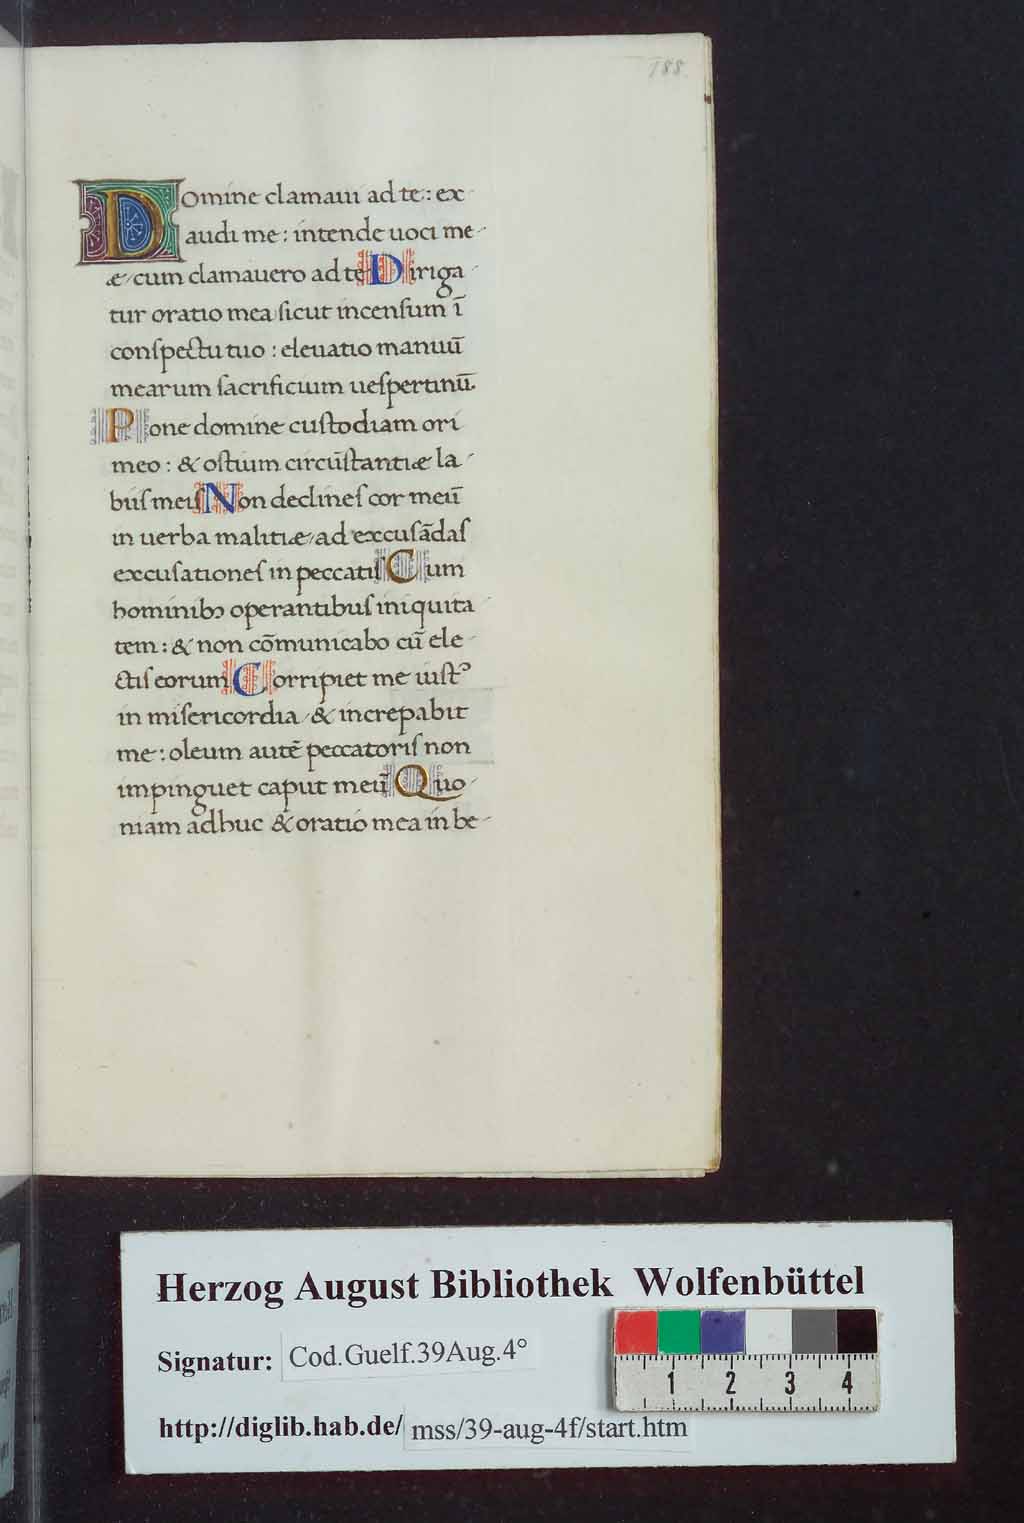 188.
Domine clamaui ad te: ex
audi me: intende uoci me
æ cum clamauero ad te Diriga
tur oratio mea sicut incensum ī
conspectu tuo: eleuatio manuū
mearum sacrificium uespertinū.
Pone domine custodiam ori
meo: & ostium circūstantiæ la
biis meis Non declines cor meū
in uerba malitiæ ad excusādas
excusationes in peccatis Cum
hominibꝫ operantibus iniquita
tem: & non cōmunicabo cū ele
ctis eorum Corripiet me iustꝰ
in misericordia & increpabit
me: oleum autē peccatoris non
impinguet caput meū Quo
niam adhuc & oratio mea in be
Herzog August Bibliothek Wolfenbüttel
Signatur: Cod.Guelf.39Aug.4°
1 2 3 4
http://diglib.hab.de/ mss/39-aug-4f/start.htm